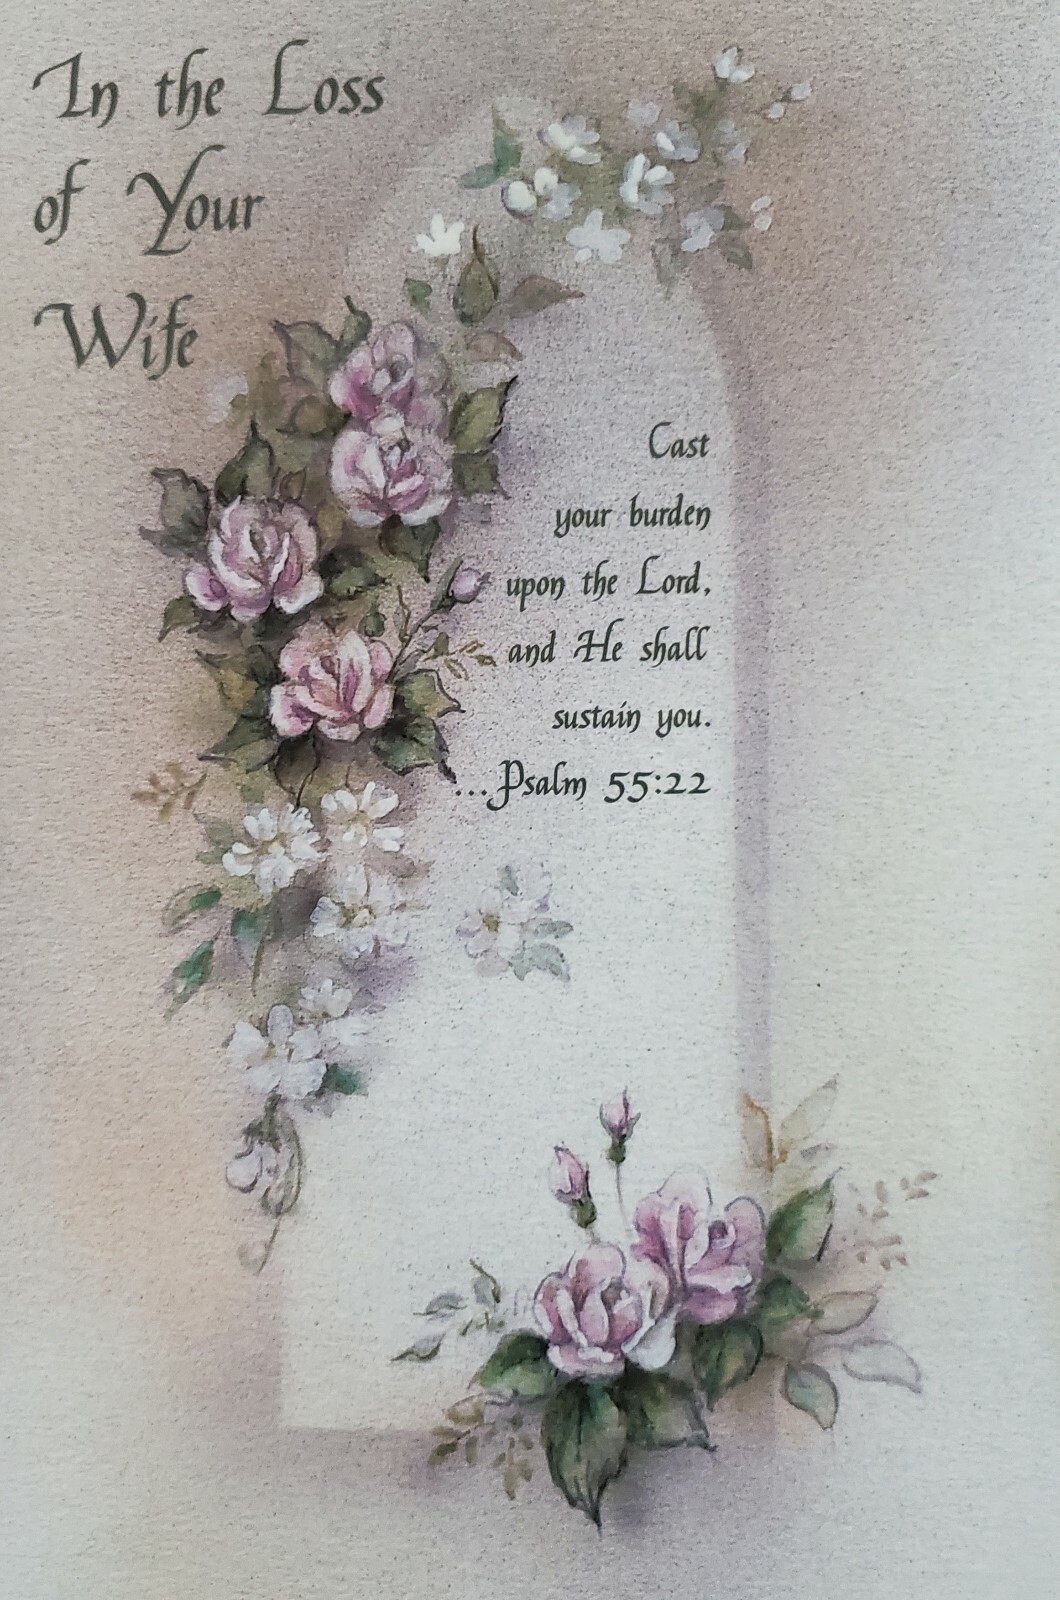 In the Loss
of Your
Wife
Cast
your burden
upon the Lord,
and He shall
sustain you.
...Psalm 55:22